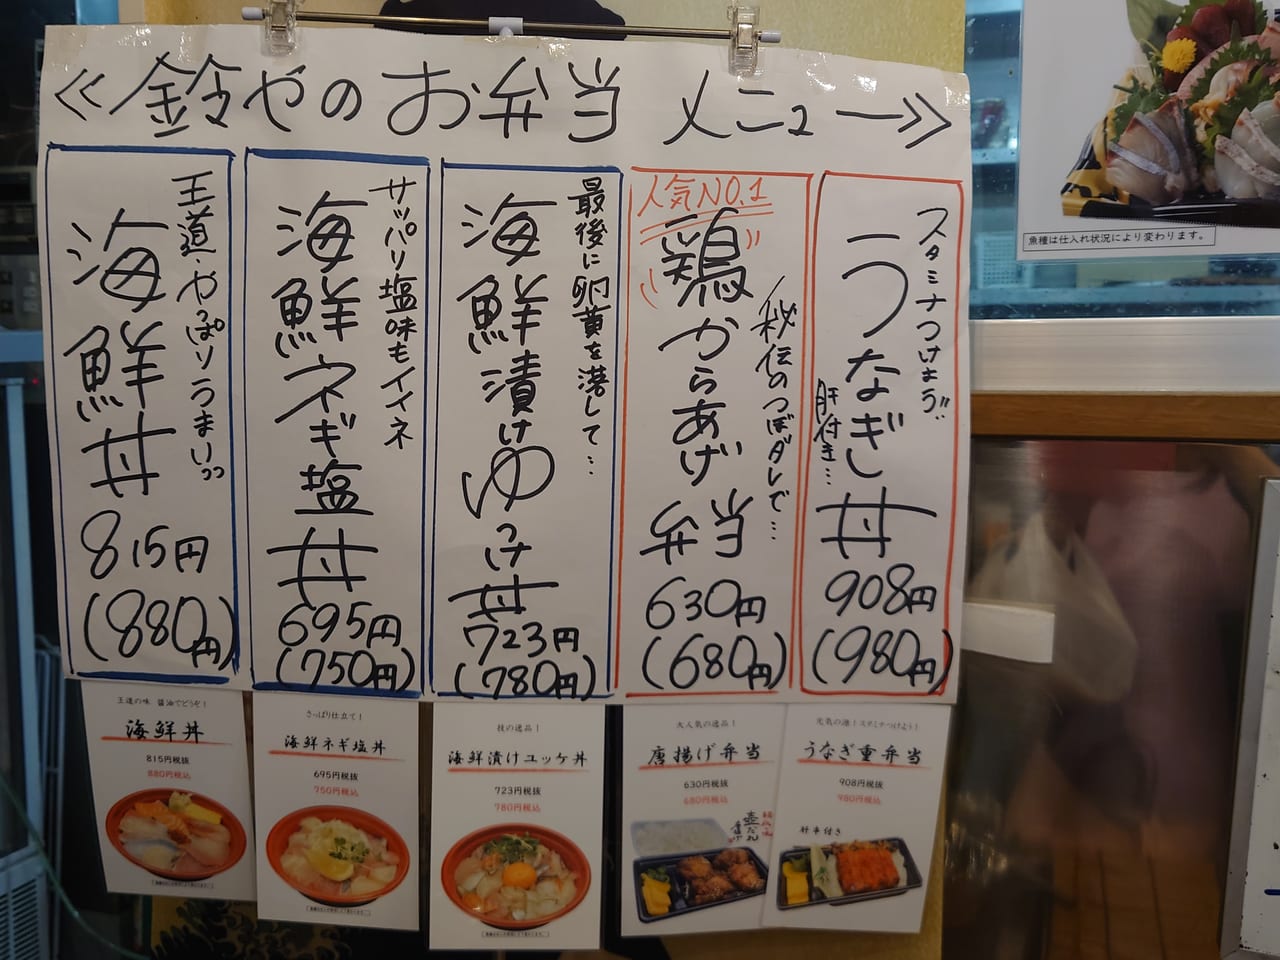 ≪鈴やのお弁当メニュー≫
王道・やっぱりうまい
海鮮丼
815円
(880円)
サッパリ塩味もイイネ
海鮮ネギ塩丼
695円
(750円)
最後に卵黄を落して…
海鮮漬けゆっけ丼
723円
(780円)
人気NO.1
秘伝のつぼダレで…
鶏からあげ弁当
630円
(680円)
スタミナつけよう!!
うなぎし丼
肝付き…
908円
(980円)
魚種は仕入れ状況により変わります。
王道の味 醤油でどうぞ!
海鮮丼
815円税抜
880円税込
さっぱり仕立て!
海鮮ネギ塩丼
695円税抜
750円税込
技の逸品!
海鮮漬けユッケ丼
723円税抜
780円税込
大人気の逸品!
唐揚げ弁当
630円税抜
680円税込
元気の源!スタミナつけよう!
うなぎ重弁当
908円税抜
980円税込
肝串付き